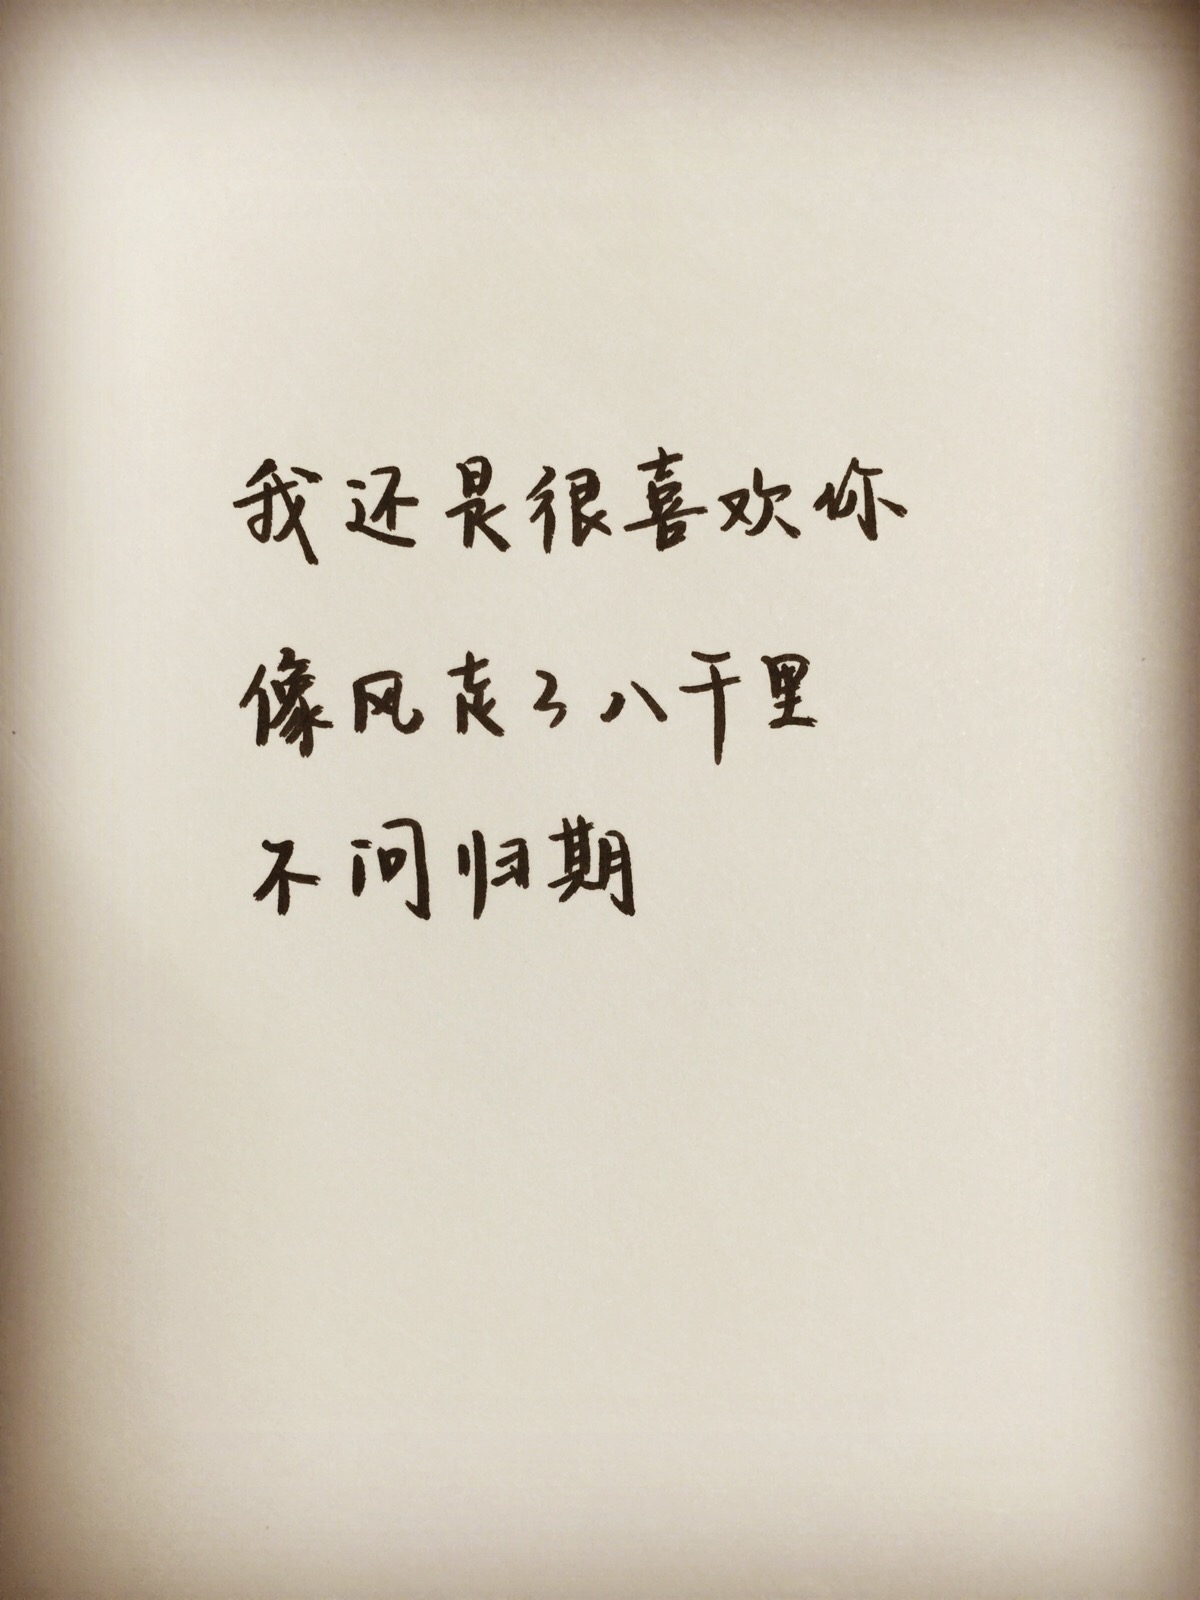 我还是很喜欢你
像风走了八千里
不问归期